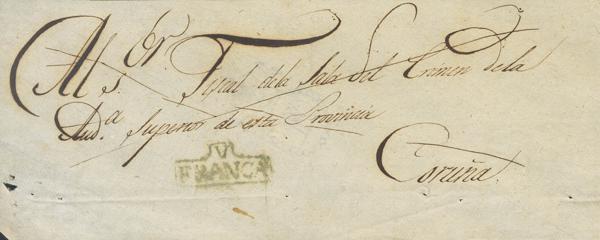 Al Sr. Fiscal de la Sala del Crimen de la
Aud.a Superior de esta Provincia
Coruña.
V
FRANCA